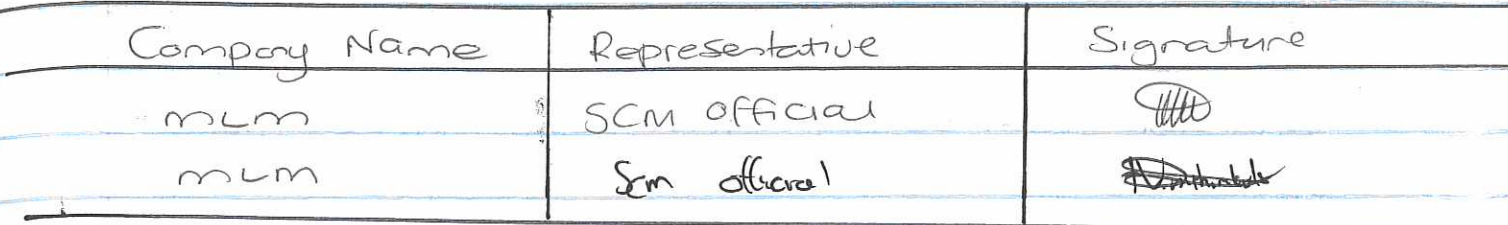 Company Name Representative Signature
MLM SCM official
MLM Scm official